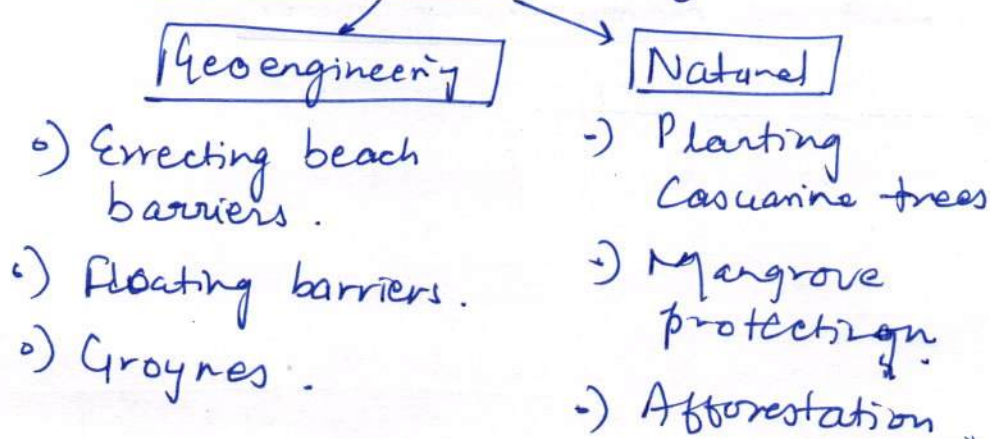 Geoengineering
Natural
o) Errecting beach
barriers.
o) Floating barriers.
o) Groynes.
-) Planting
Casuarine trees
-) Mangrove
protection.
-) Afforestation